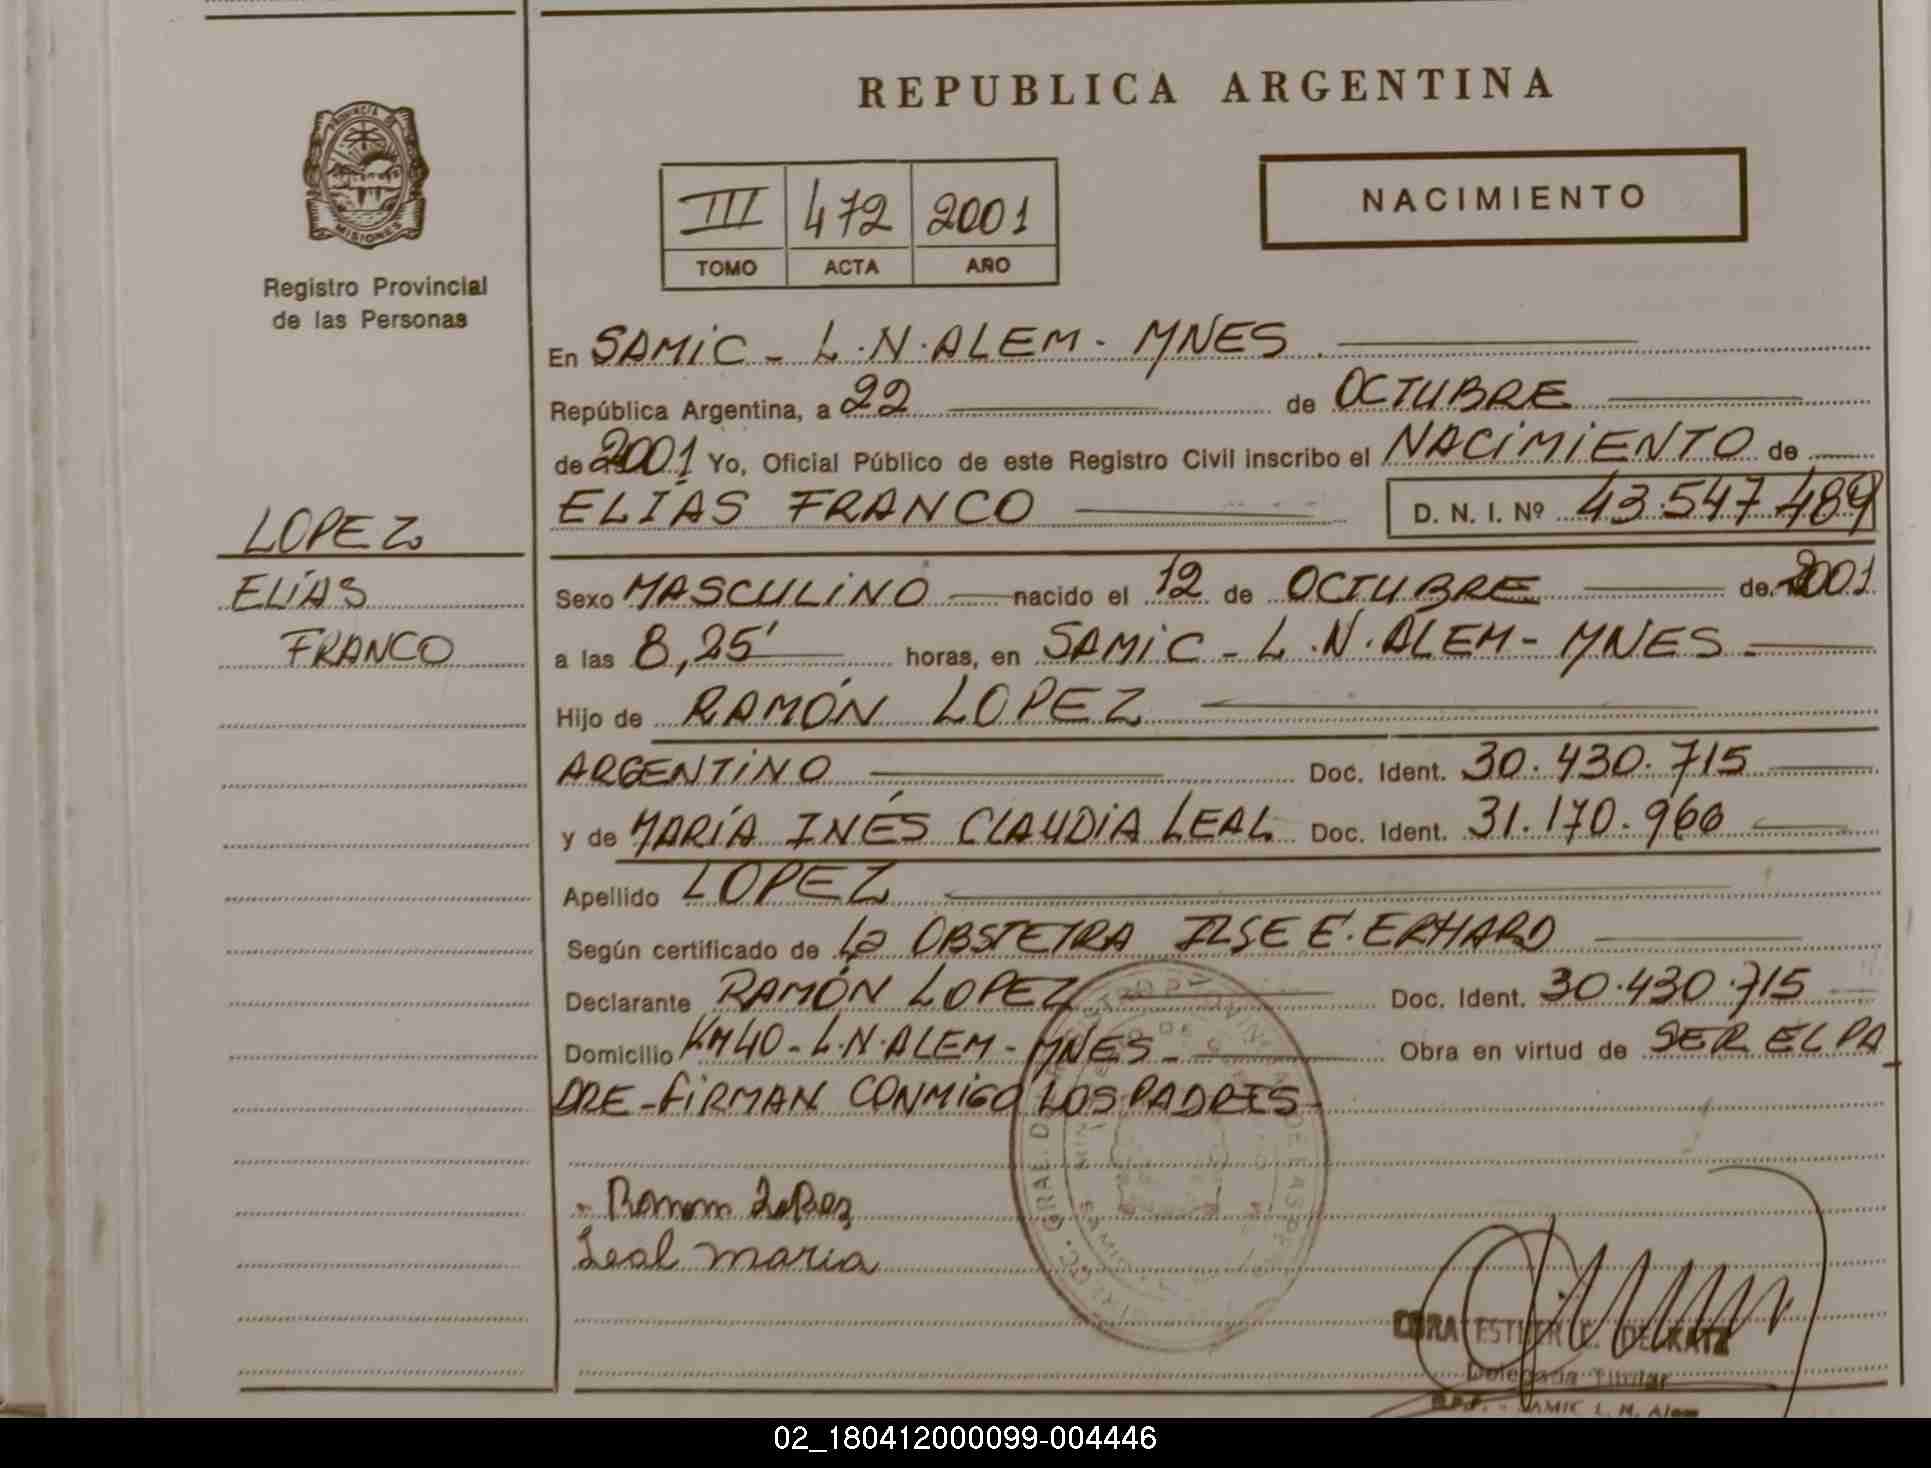 REPUBLICA ARGENTINA
PROVINCIA DE
MISIONES
Registro Provincial
de las Personas
III 472 2001
TOMO ACTA AÑO
NACIMIENTO
En SAMIC - L.N.ALEM - MNES.
República Argentina, a 22 de OCTUBRE
de 2001 Yo, Oficial Público de este Registro Civil inscribo el NACIMIENTO de
ELÍAS FRANCO D. N. I. Nº 43.547.489
LOPEZ
ELÍAS
FRANCO
Sexo MASCULINO nacido el 12 de OCTUBRE de 2001
a las 8,25' horas, en SAMIC - L.N.ALEM - MNES -
Hijo de RAMÓN LOPEZ
ARGENTINO Doc. Ident. 30.430.715
y de MARÍA INÉS CLAUDIA LEAL Doc. Ident. 31.170.966
Apellido LOPEZ
Según certificado de La OBSTETRA ILSE E. ERHARD
Declarante RAMÓN LOPEZ Doc. Ident. 30.430.715
Domicilio KM40 - L.N.ALEM - MNES - Obra en virtud de SER EL PA
DRE - FIRMAN CONMIGO LOS PADRES -
Ramon Lopez
Leal maria
ESTHER DE KATZ
Delegada Titular
SAMIC L. N. Alem
02_180412000099-004446